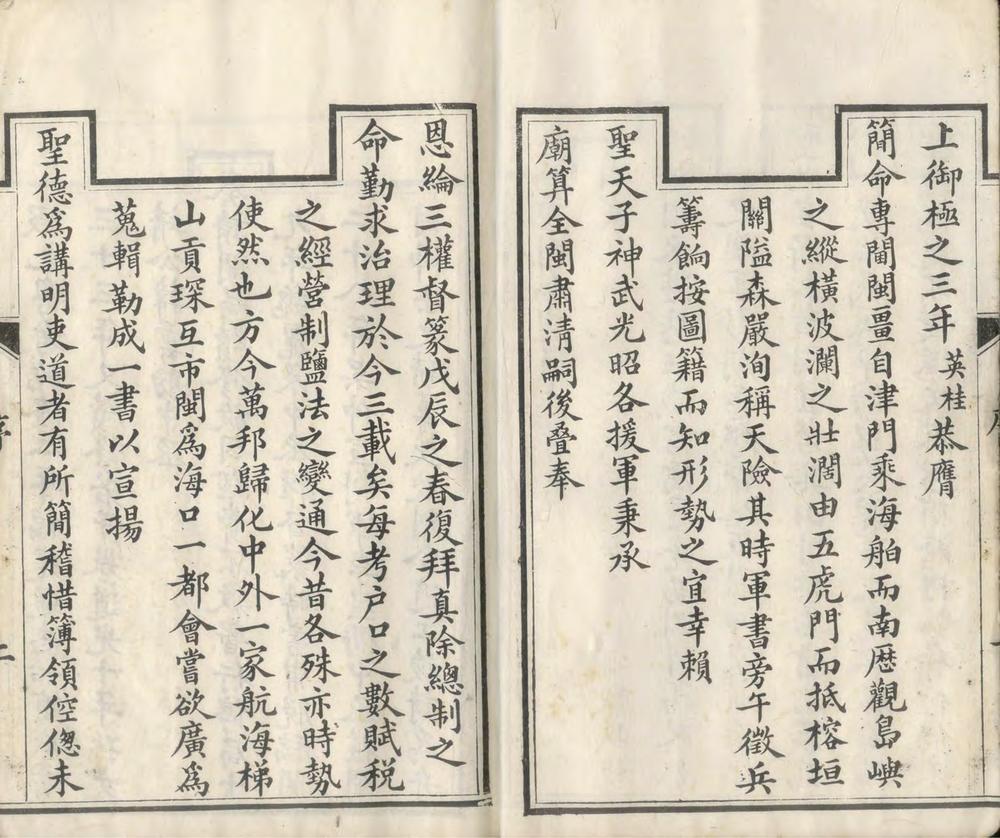 上御極之三年英桂恭膺
簡命專閫閩畺自津門乘海舶而南歴觀島嶼
之縱橫波瀾之壯濶由五虎門而抵榕垣
關隘森嚴洵稱天險其時軍書旁午徵兵
籌餉按圖籍而知形勢之宜幸賴
聖天子神武光昭各援軍秉承
廟算全閩肅清嗣後疊奉
恩綸三權督篆戊辰之春復拜真除總制之
命勤求治理於今三載矣每考户口之數賦税
之經營制鹽法之變通今昔各殊亦時勢
使然也方今萬邦歸化中外一家航海梯
山貢琛互市閩爲海口一都會嘗欲廣爲
蒐輯勒成一書以宣揚
聖德爲講明吏道者有所簡稽惜簿領倥偬未